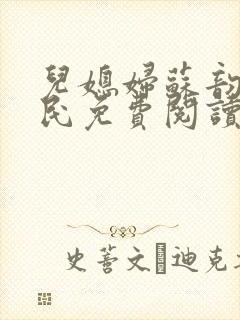 兒媳婦蘇韵
民免費閱讀
史蒂文 迪克